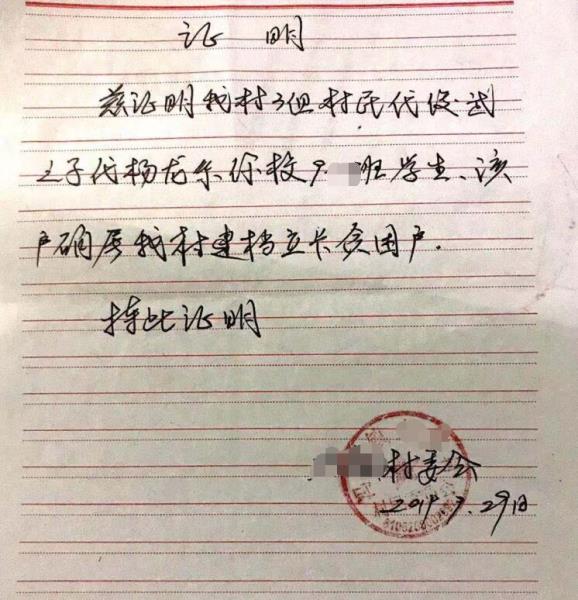 证 明
兹证明我村3组村民代俊武
之子代杨龙系你校9. 班学生、该
户确属我村建档立卡贫困户.
特此证明
村委会
29日